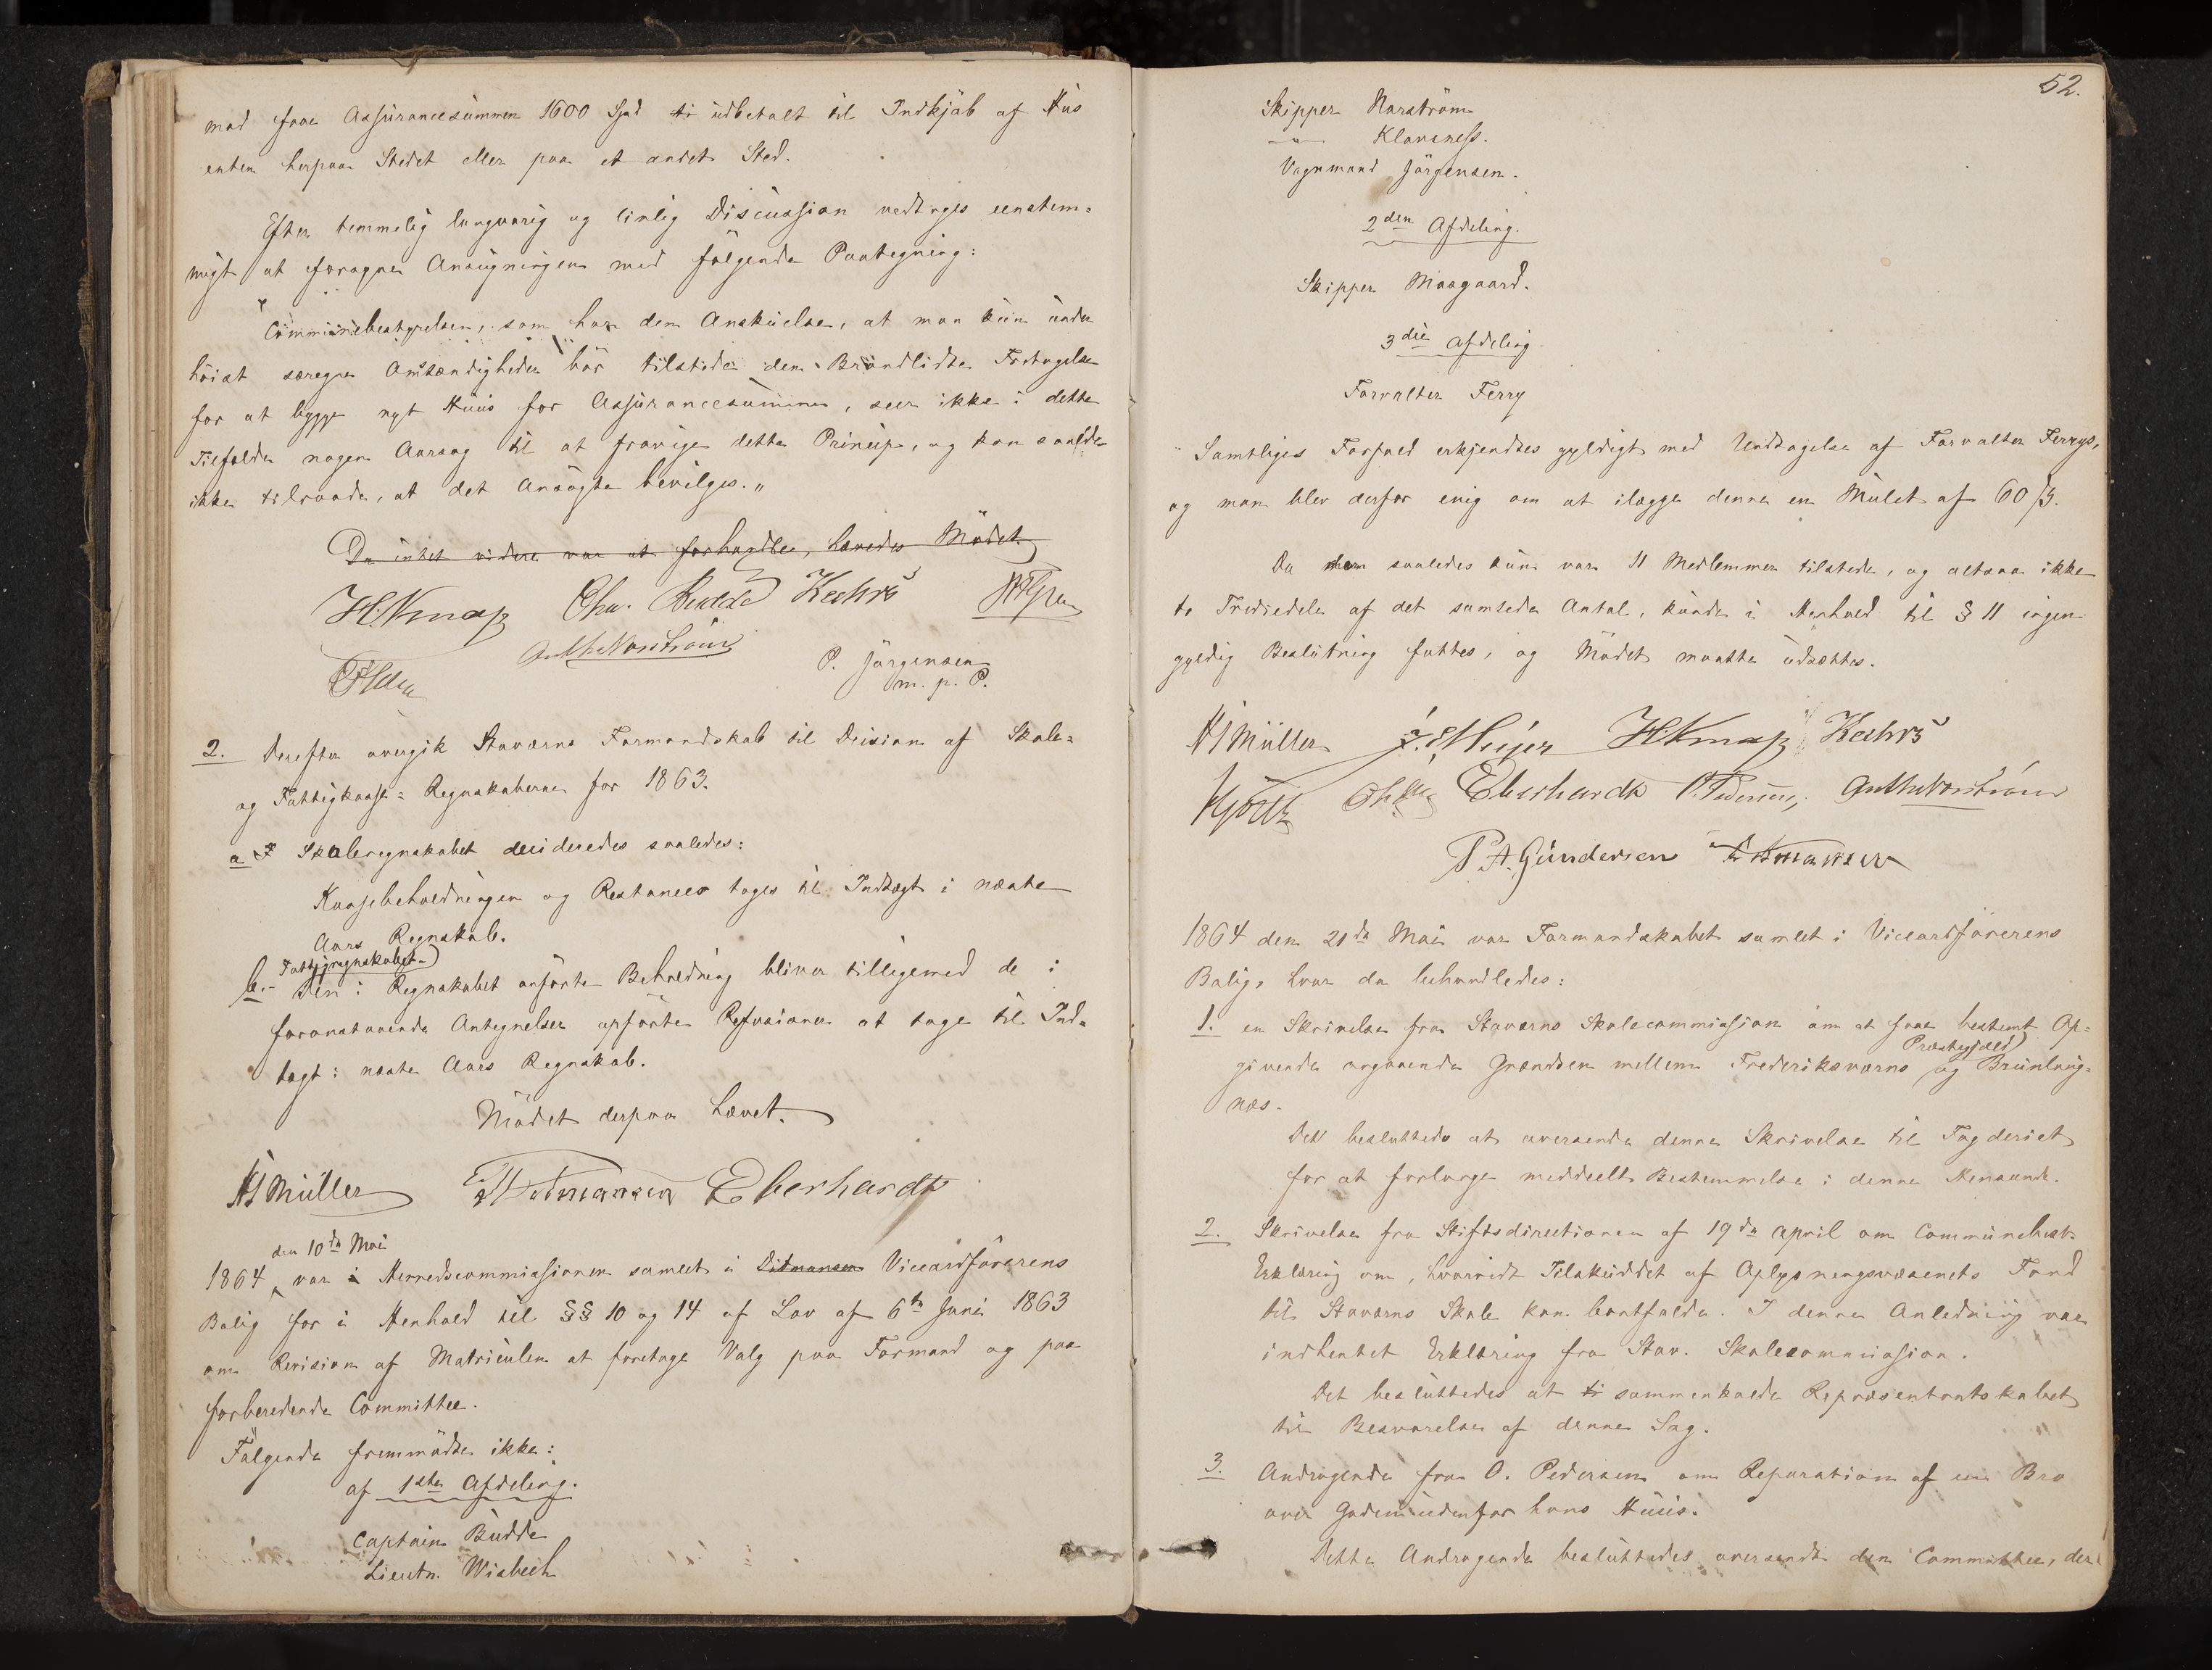 maa faae Assürancesummen 1600 Spd til üdbetalt til Indkjøb af Hüs
enten herpaa Stedet eller paa et andet Sted.
Efter temmelig langvarig og livlig Discussion vedtoges eenstem-
migt at forsyne Ansøgningen med følgende Paategning:
"Commünebestyrelsen, som har den Anskuelse, at man kün ünder
høist særegne Omstændigheder bør tilstede den Brandlidte Fritagelse
for at bygge nyt Hüüs for Assürancesummen, seer ikke i dette
Tilfælde nogen Aarsag til at fravige dette Princip, og kan saaledes
ikke tilraade, at det Ansøgte bevilges."
Da intet videre var at forhandle, hævedes Mødet.
H. Knap Chr. Budde Kahrs
Ant. M. Norström P. Jörgensen
m. p. P.
2. Derefter overgik Staværns Formandskab til Decision af Skole-
og Fattigkasse-Regnskaberne for 1863.
a Skoleregnskabet decideredes saaledes:
Kassebeholdningen og Restancer tages til Indtægt i næste
Aars Regnskab.
Fattigregnskabet
b.- Den i Regnskabet anførte Beholdning bliver tilligemed de i
foranstaaende Antegnelser opførte Refusioner at tage til Ind-
tægt i næste Aars Regnskab.
Mødet derpaa hævet.
HJMüller Ditmansen Eberhardt
den 10de Mai
1864 var i Herredscommissionen samlet i Ditmansen Viceordførerens
Bolig for i Henhold til §§ 10 og 14 af Lov af 6te Juni 1863
om Revision af Matricülen at foretage Valg paa Formand og paa
forberedende Committee.
Følgende fremmødte ikke:
af 1ste Afdeling.
Captain Büdde
Lieutn. Wisbech
52.
Skipper Norström
—"— Klaveness.
Vognmand Jörgensen.
2den Afdeling.
Skipper Moegaard.
3die Afdeling
Forvalter Ferry
Samtliges Forfald erkjendtes gyldigt med Undtagelse af Forvalter Ferrys,
og man blev derfor enig om at ilægge denne en Mulct af 60 ß.
Da der saaledes kün var 11 Medlemmer tilstede, og altsaa ikke
to Trediedele af det samlede Antal, künde i Henhold til § 11 ingen
gyldig Beslütning fattes, og Mødet maatte üdsættes.
HJMüller J. Meyer H. Knap Kahrs
Hjorth Eberhardt O. Pedersen, Ant. M. Norström
P. A. Gündersen Ditmansen
1864 den 21de Mai var Formandskabet samlet i Viceordførerens
Bolig, hvor da behandledes:
1. en Skrivelse fra Staværns Skolecommission om at faae bestemt Op-
Præstegjæld
givende angaaende Grændsen mellem Frederiksværns og Brünlang-
næs.
Det besluttedes at oversende denne Skrivelse til Fogderiet
for at forlange meddeelt Bestemmelse i denne Henseende.
2. Skrivelse fra Stiftsdirectionen af 19de April om Commünebest.
Erklæring om, hvorvidt Tilskuddet af Oplysningsvæsenets Fond
til Staværns Skole kan bortfalde. I denne Anledning var
indhentet Erklæring fra Stav. Skolecommission.
Det beslüttedes at til sammenkalde Repræsentantskabet
til Besvarelse af denne Sag.
3. Andragende fra O. Pedersen om Reparation af en Bro
over Gaden udenfor hans Hüüs.
Dette Andragende beslüttedes oversendt den Committee, der